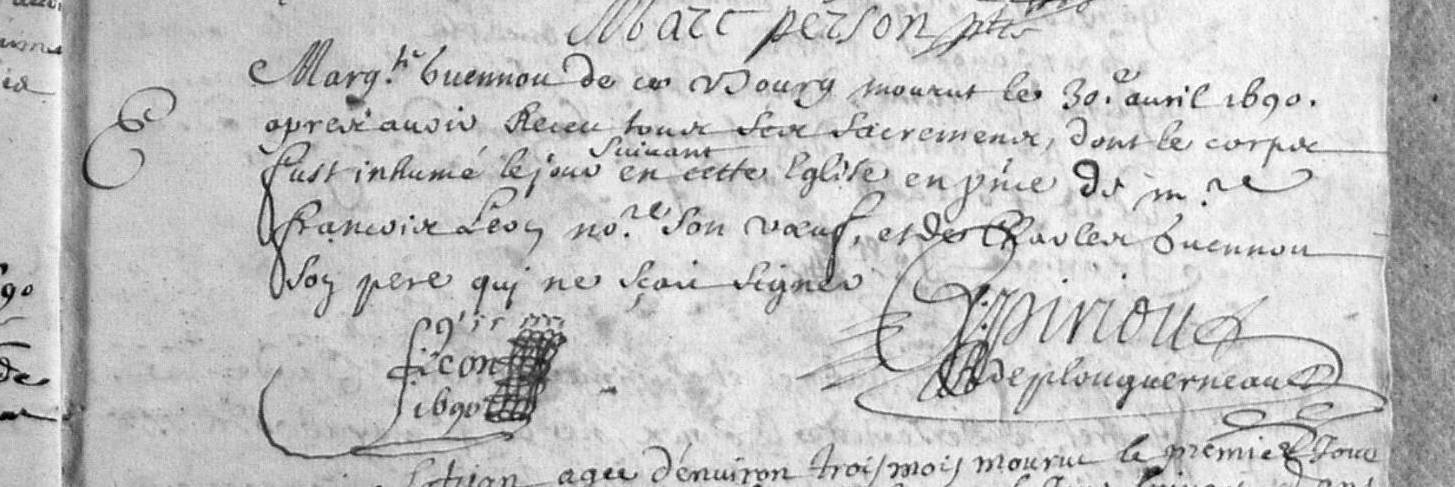 Marc person ptre
Marg.te Guennou de ce Bourg mourut le 30.e auril 1690.
apres auoir Receu tous ses sacremens, dont le corps
fust inhumé le jour suiuant en cette Eglise en pnce de m.re
françois Leon no.re son vœuf, et de Charles Guennou
son pere qui ne sçait signer
f leon
1690
piriou
de plouguerneau
agee d'enuiron trois mois mourut le premier Jour